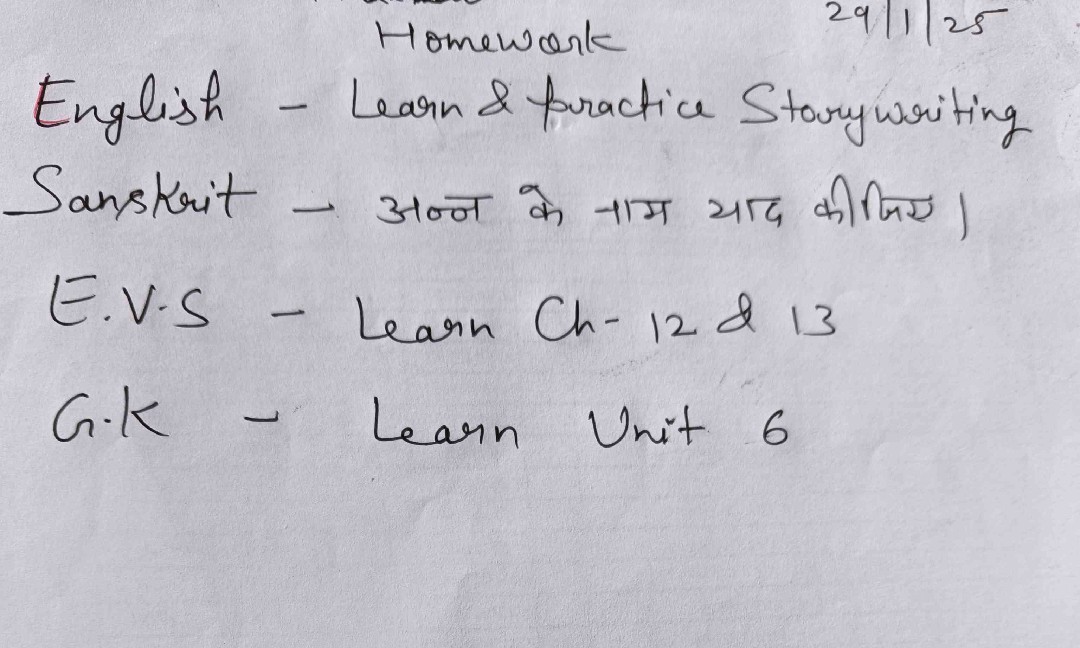 Homework 29/1/25
English - Learn & practice Storywriting
Sanskrit - अन्न के नाम याद कीजिए।
E.V.S - Learn Ch- 12 & 13
G.K - Learn Unit 6